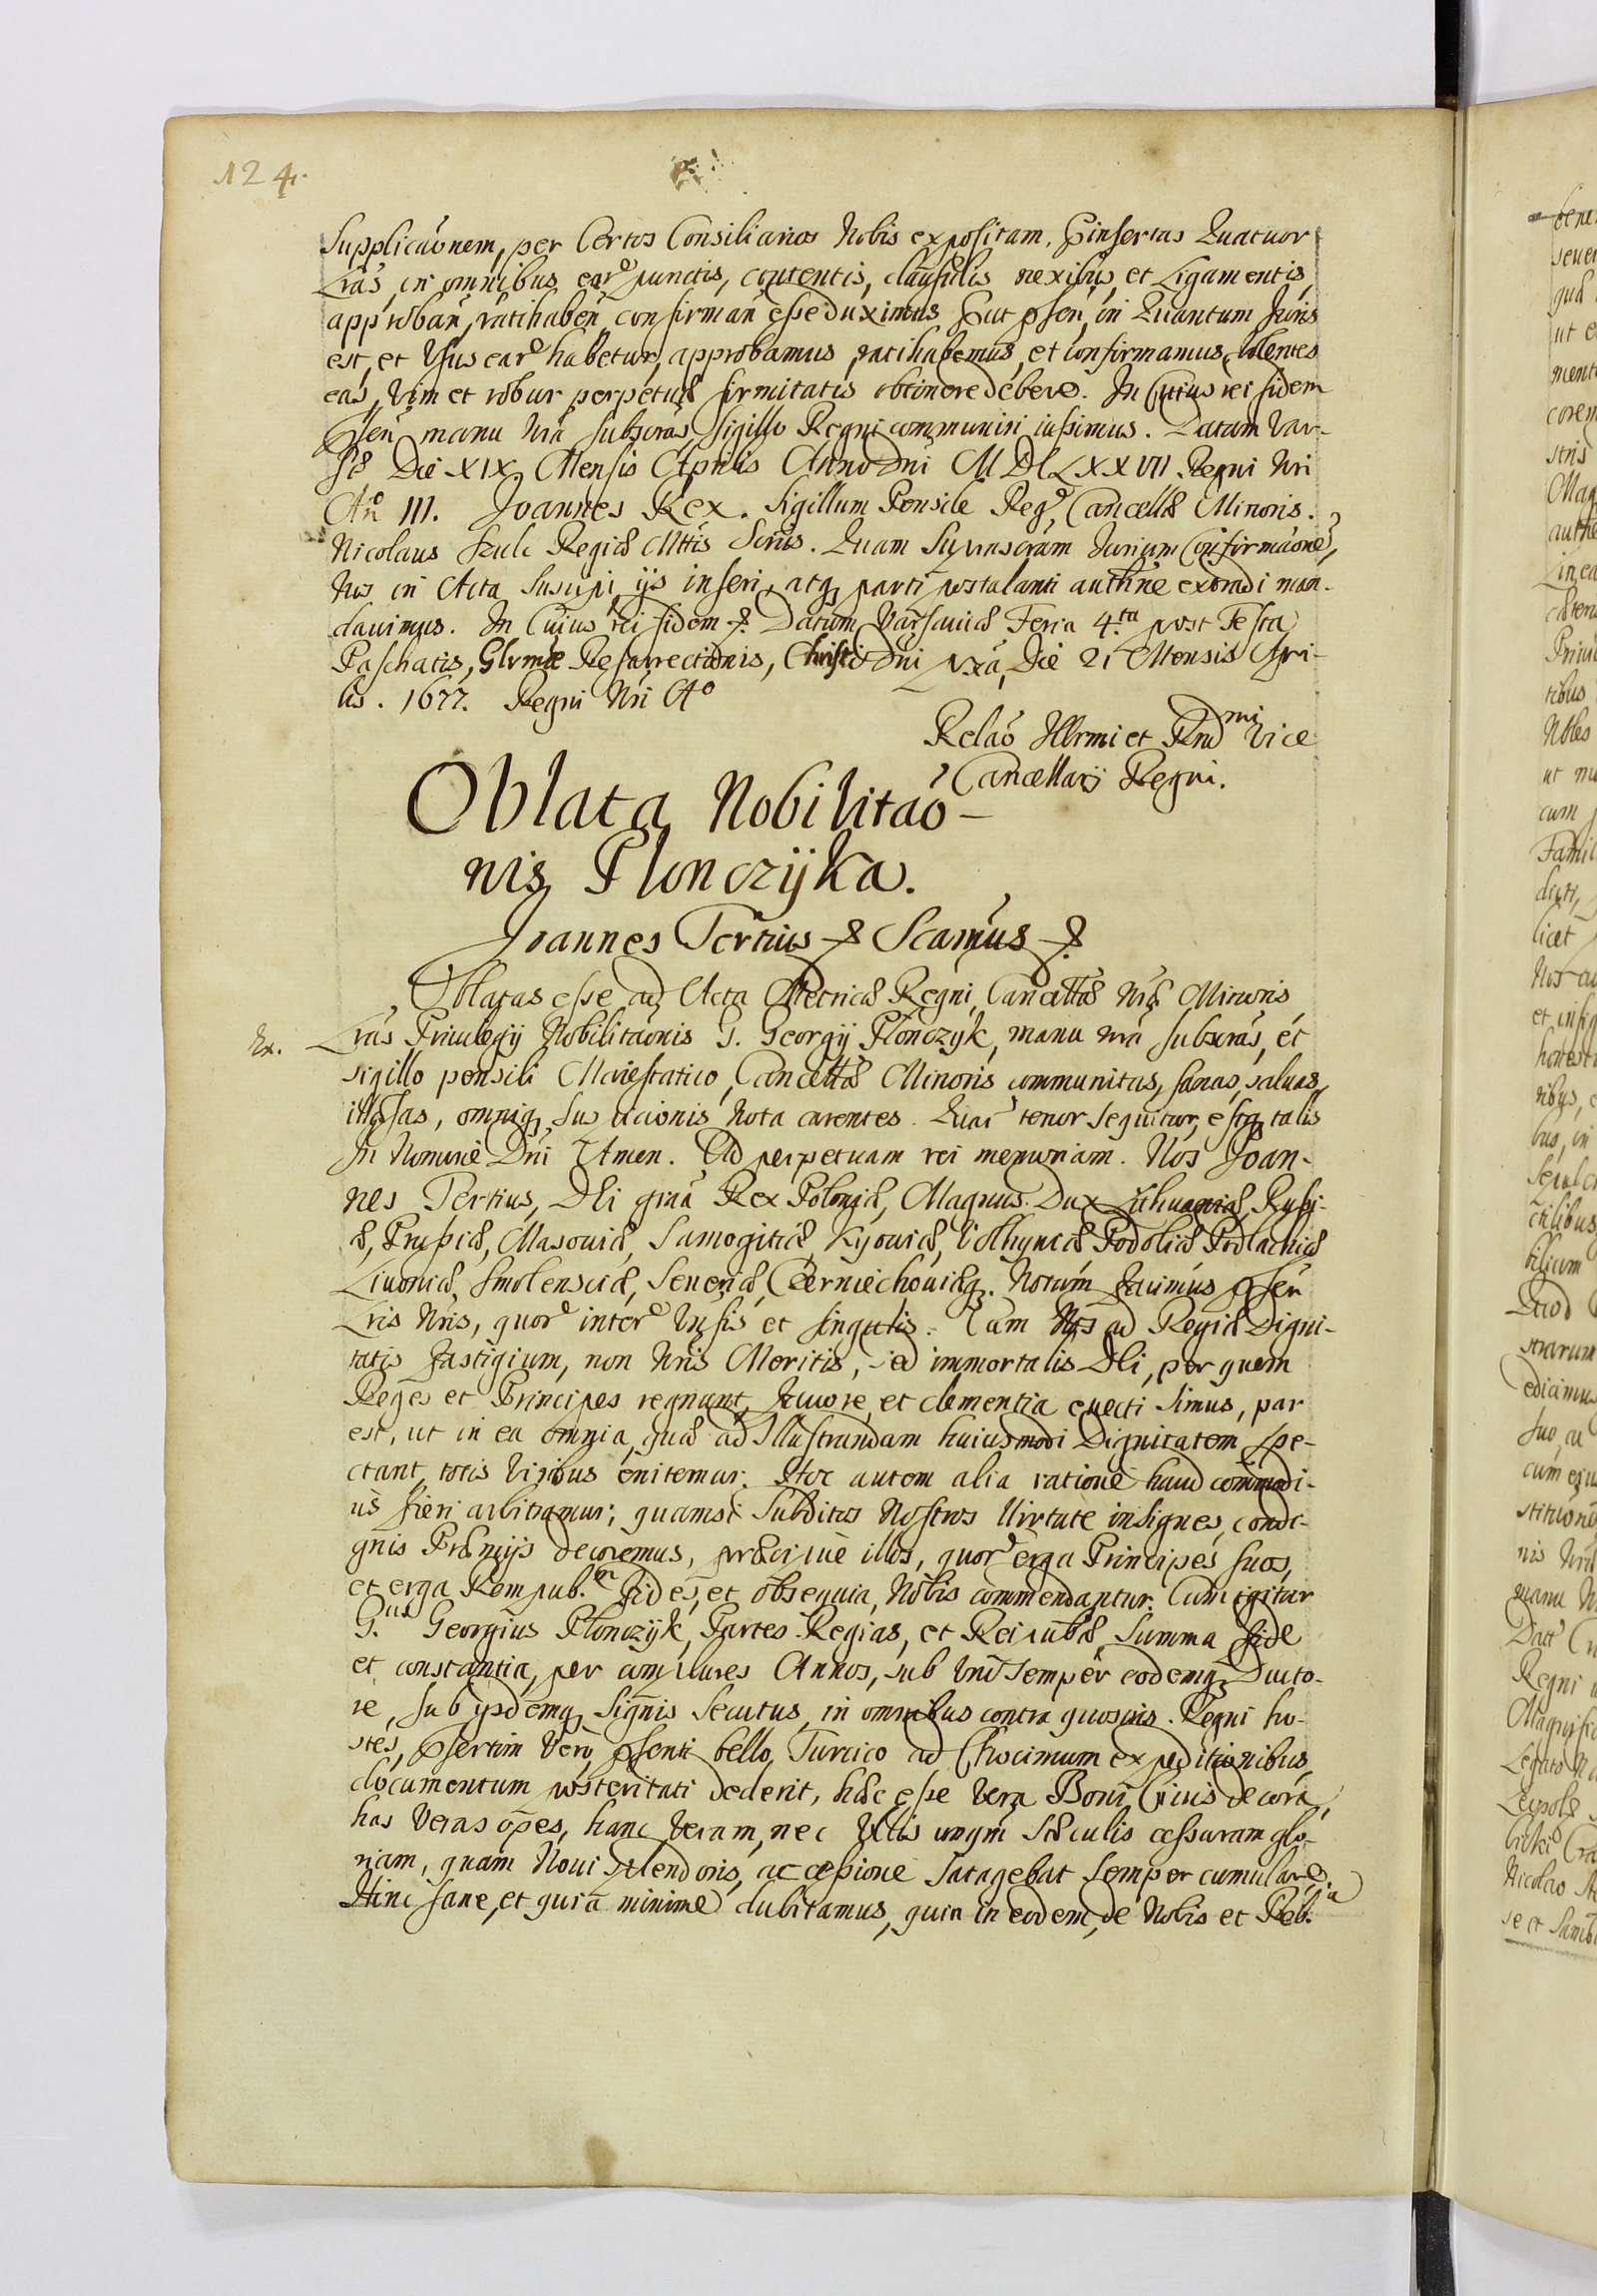 124.
Supplicaõnem, per Certos Consiliarios Nobis expositam, Pinsertas Quatuor
Lrãs, in omnibus earᵈ punctis, contentis, clausulis nexibus, et Ligamentis,
approbañ, ratihabeñ confirmañ esse duximus Put pseñ, in Quantum Juris
est, et Usus earᵈ habetur, approbamus, ratihabemus, et confirmamus, Volentes
eas, Vim et robur perpetuæ firmitatis obtinere debere. In Cuius rei fidem
Pseñ manu Nrã subscras, Sigillo Regni communiri iussimus. Datum Var-
sæ Die XIX. Mensis Aprilis Anno Dni M DC LXXVII Regni Nri
Añᵒ III. Joannes Rex. Sigillum Pensile Regᵈ, Cancellæ Minoris.
Nicolaus Szulc Regiæ Mttis Scrius. Quam Suprascram Jurium Confirmaõne,
Nos in Acta Suscipi, ijs inseri, atq parti postulanti authñe extradi man-
dauimus. In Cuius rei fidem &. Datum Varsauiæ Feria 4.ta post Festa
Paschatis, Glrmæ Resurrectionis, Christi Dni pxã, Die 21 Mensis Apri-
lis. 1677. Regni Nri Aᵒ
Relaõ Illrmi et Rnd mi Vice
Cancellarij Regni.
Oblata Nobilitaõ-
nis Plonczyka.
Joannes Tertius & Scamus &
Oblatas esse ad Acta Metricæ Regni, Cancellæ Nræ Minoris,
Ex. Lrãs Priuilegij Nobilitaõnis G. Georgij Plonczyk, manu nrã subscras, et
sigillo pensili Maiestatico, Cancellæ Minoris communitas, sanas, saluas,
illæsas, omniq suspicionis nota carentes. Quar tenor sequitur, estq talis
In Nomine Dñi Amen. Ad perpetuam rei memoriam. Nos Joan-
nes Tertius, DEi grãa Rex Poloniæ, Magnus Dux Lithuaniæ, Russi-
æ, Prussiæ, Masouiæ, Samogitiæ, Kyouiæ, Volhyniæ Podoliæ Podlachiæ
Liuoniæ, Smolensciæ, Seueriæ, Czerniechouiæq. Notum facimus pseñ
Lris Nris, quorᵈ interᵈ Vnsis et singulis. Cum Nos ad Regiæ Digni-
tatis fastigium, non Nris Meritis, sed immortalis DEi, per quem
Reges et Principes regnant, fauore, et clementia euecti simus, par
est, ut in ea omnia, quæ ad Illustrandam huiusmodi Dignitatem spe-
ctant, totis Viribus enitemur. Hoc autem alia ratione haud commodi-
us fieri arbitramur; quamsi Subditos Nostros Virtute insignes, condi-
gnis Præmijs decoremus, præcipuè illos, quorᵈ erga Principes suos,
et erga Rempub.m fides, et obsequia, Nobis commendantur. Cum igitur
G.us Georgius Plonczyk, Partes Regias, et Reipubæ, Summa fide
et constantia, per complures Annos, sub Vno semper eodemq Ducto-
re, sub ijsdemq Signis Secutus, in omnibus contra quosuis Regni ho-
stes, Psertim Vero, psenti bello, Turcico ad Chocimum expeditionibus,
documentum posteritati dederit, hæc esse Vera Boni Ciuis decora,
has Veras opes, hanc Veram, nec Vllis unqm Sæculis cessuram glo-
riam, quam Noui splendoris, accessione Satagebat semper cumulare.
Hinc sane, et quia minime dubitamus, quin in eodem, de Nobis et Reb.a